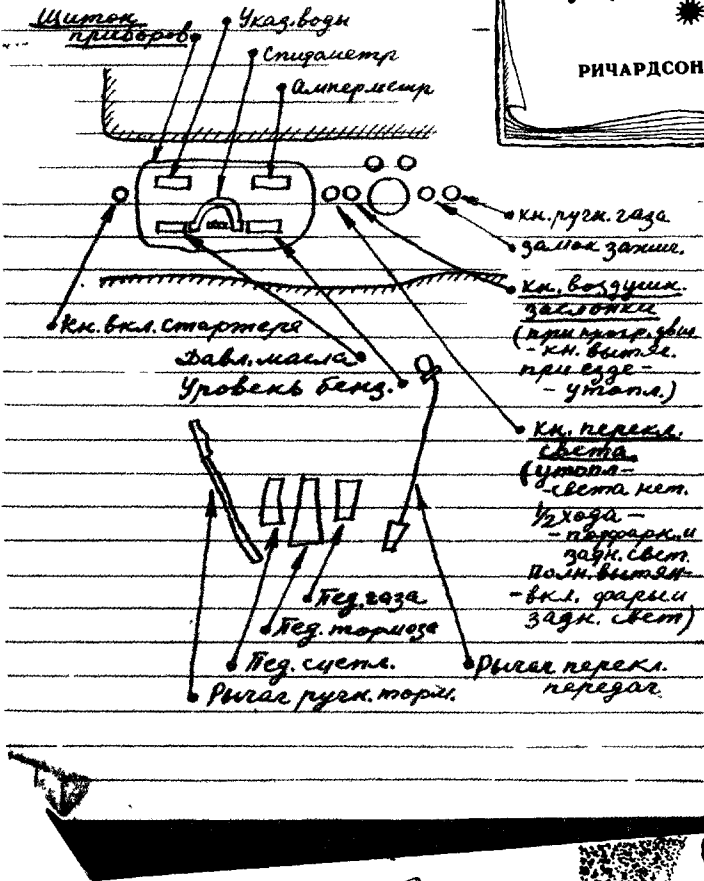 Щиток
приборов
Указ. воды
Спидометр
Амперметр
РИЧАРДСОН
кн. ручн. газа
замок зажиг.
кн. воздушн.
заслонки
(при прогр. двиг.
- кн. вытяг.
при езде -
- утопл.)
Кн. вкл. стартера
Давл. масла
Уровень бенз.
кн. перекл.
света
(утопл -
- света нет.
1/2 хода -
- подфарк. и
задн. свет.
Полн. вытян -
- вкл. фары и
задн. свет)
Пед. газа
Пед. тормоза
Пед. сцепл.
Рычаг ручн. торм.
Рычаг перекл.
передач